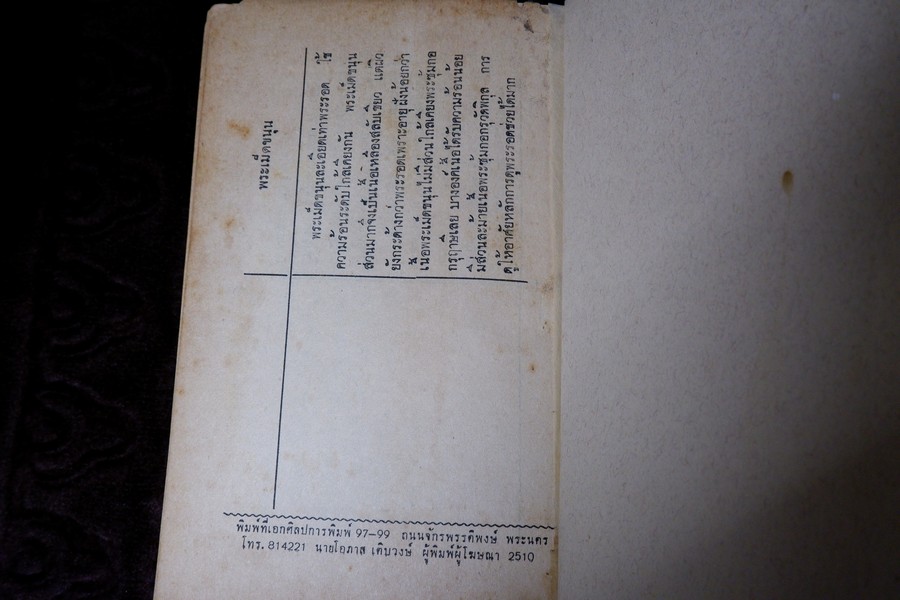 พระเม็ดขนุน
พระเม็ดขนุนละเอียดเท่าพระรอด ใช้
ความร้อนระดับใกล้เคียงกัน พระเม็ดขนุน
ส่วนมากจึงเป็นเนื้อเหลืองสลับเขียว แต่ผิว
ยังกระด้างกว่าพระรอดเพราะอายุฝังน้อยกว่า
เนื้อพระเม็ดขนุนไม่มีส่วนใกล้เคียงพระซุ้มกอ
กรุเก่าเลย บางองค์เนื้อได้รับความร้อนน้อย
มีส่วนละม้ายเนื้อพระซุ้มกอกรุวัดพิกุล การ
ดูให้อาศัยหลักการดูพระรอดช่วยได้มาก
พิมพ์ที่เอกศิลปการพิมพ์ 97-99 ถนนจักรพรรดิพงษ์ พระนคร
โทร. 814221 นายโอภาส เติบวงษ์ ผู้พิมพ์ผู้โฆษณา 2510